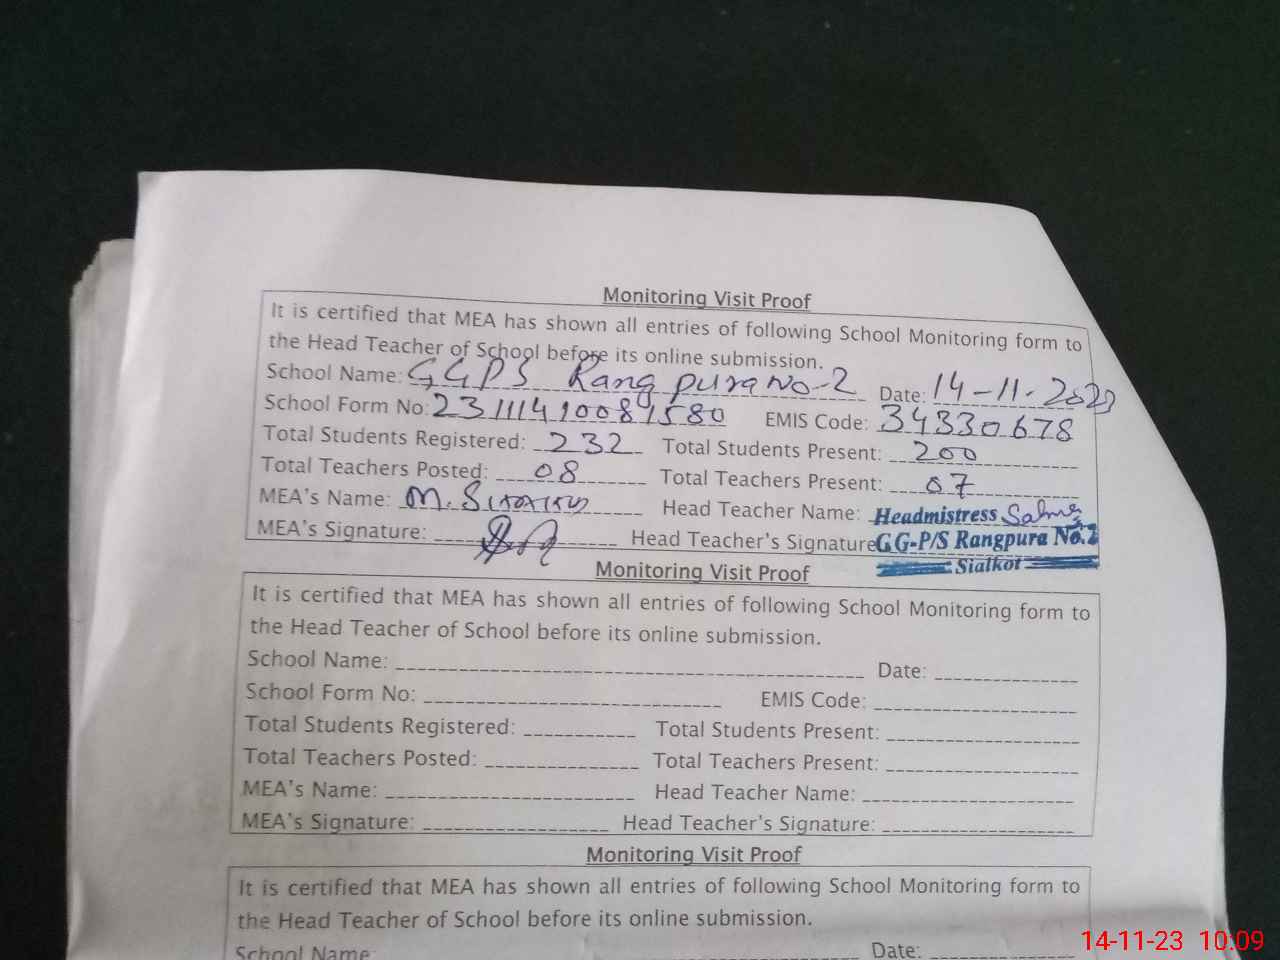 Monitoring Visit Proof
It is certified that MEA has shown all entries of following School Monitoring form to
the Head Teacher of School before its online submission.
School Name: GGPS Rangpura No-2 Date: 14-11-2023
School Form No: 231114100871580 EMIS Code: 34330678
Total Students Registered: 232 Total Students Present: 200
Total Teachers Posted: 08 Total Teachers Present: 07
MEA's Name: M. Head Teacher Name: Headmistress Salma
MEA's Signature: Head Teacher's Signature G.G-P/S Rangpura No.2
Sialkot
Monitoring Visit Proof
It is certified that MEA has shown all entries of following School Monitoring form to
the Head Teacher of School before its online submission.
School Name: Date:
School Form No: EMIS Code:
Total Students Registered: Total Students Present:
Total Teachers Posted: Total Teachers Present:
MEA's Name: Head Teacher Name:
MEA's Signature: Head Teacher's Signature:
Monitoring Visit Proof
It is certified that MEA has shown all entries of following School Monitoring form to
the Head Teacher of School before its online submission.
School Name: Date:
14-11-23 10:09